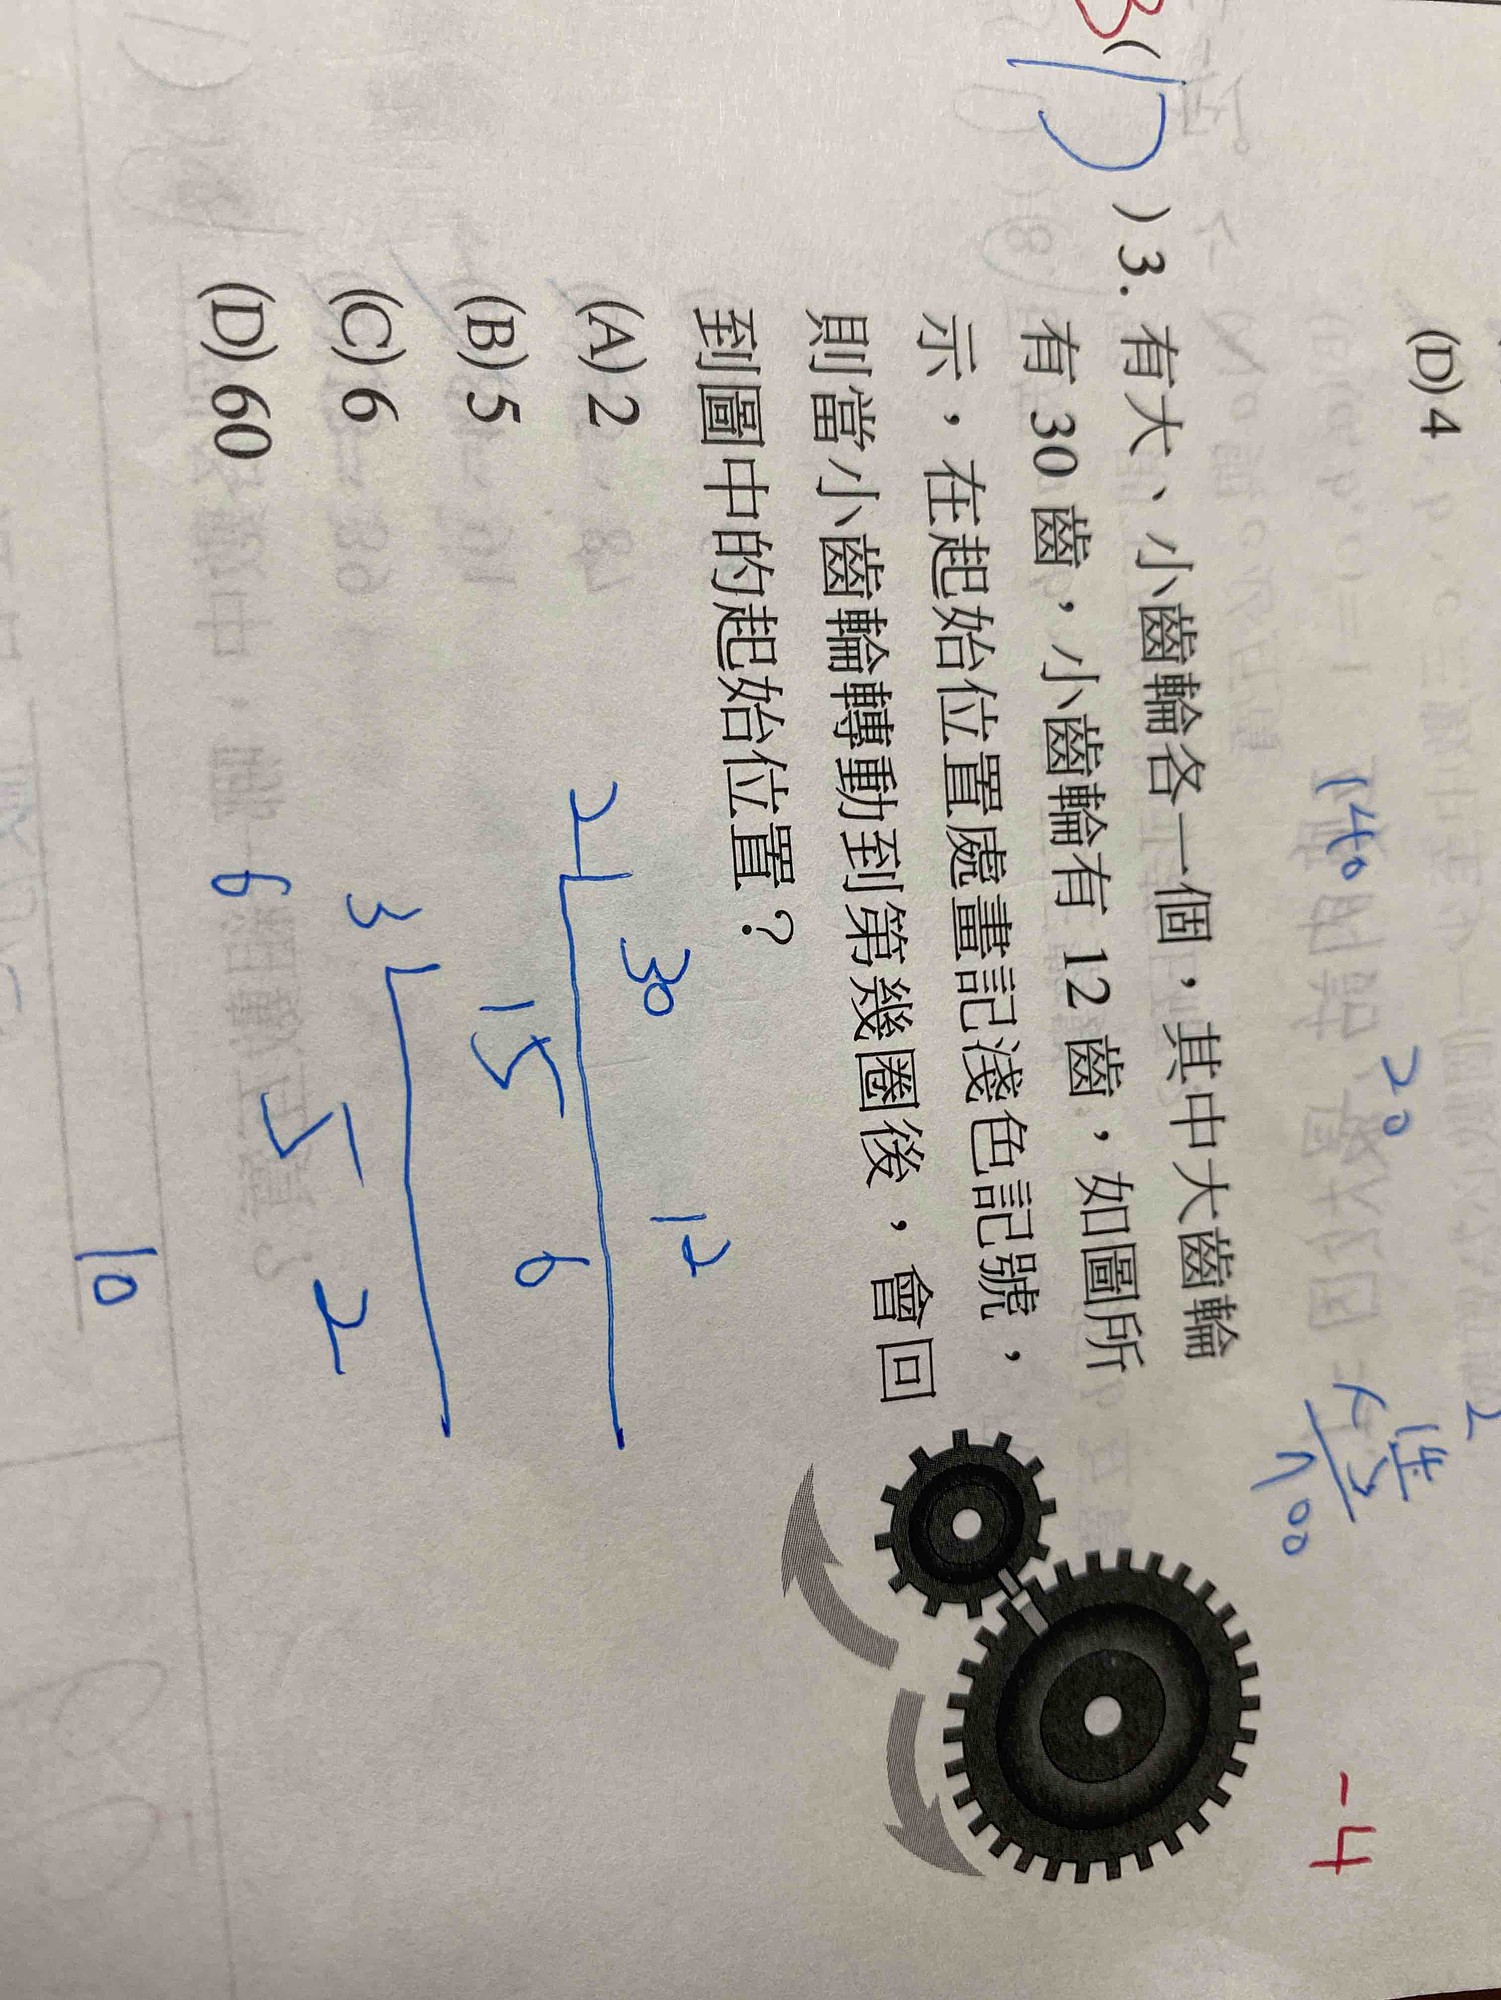 (D) 4
140
20
-4
B
( D ) 3. 有大、小齒輪各一個，其中大齒輪
有 30 齒，小齒輪有 12 齒，如圖所
示，在起始位置處畫記淺色記號，
則當小齒輪轉動到第幾圈後，會回
到圖中的起始位置？
(A) 2
(B) 5
(C) 6
(D) 60
2 30 12
3 15 6
6 5 2
10